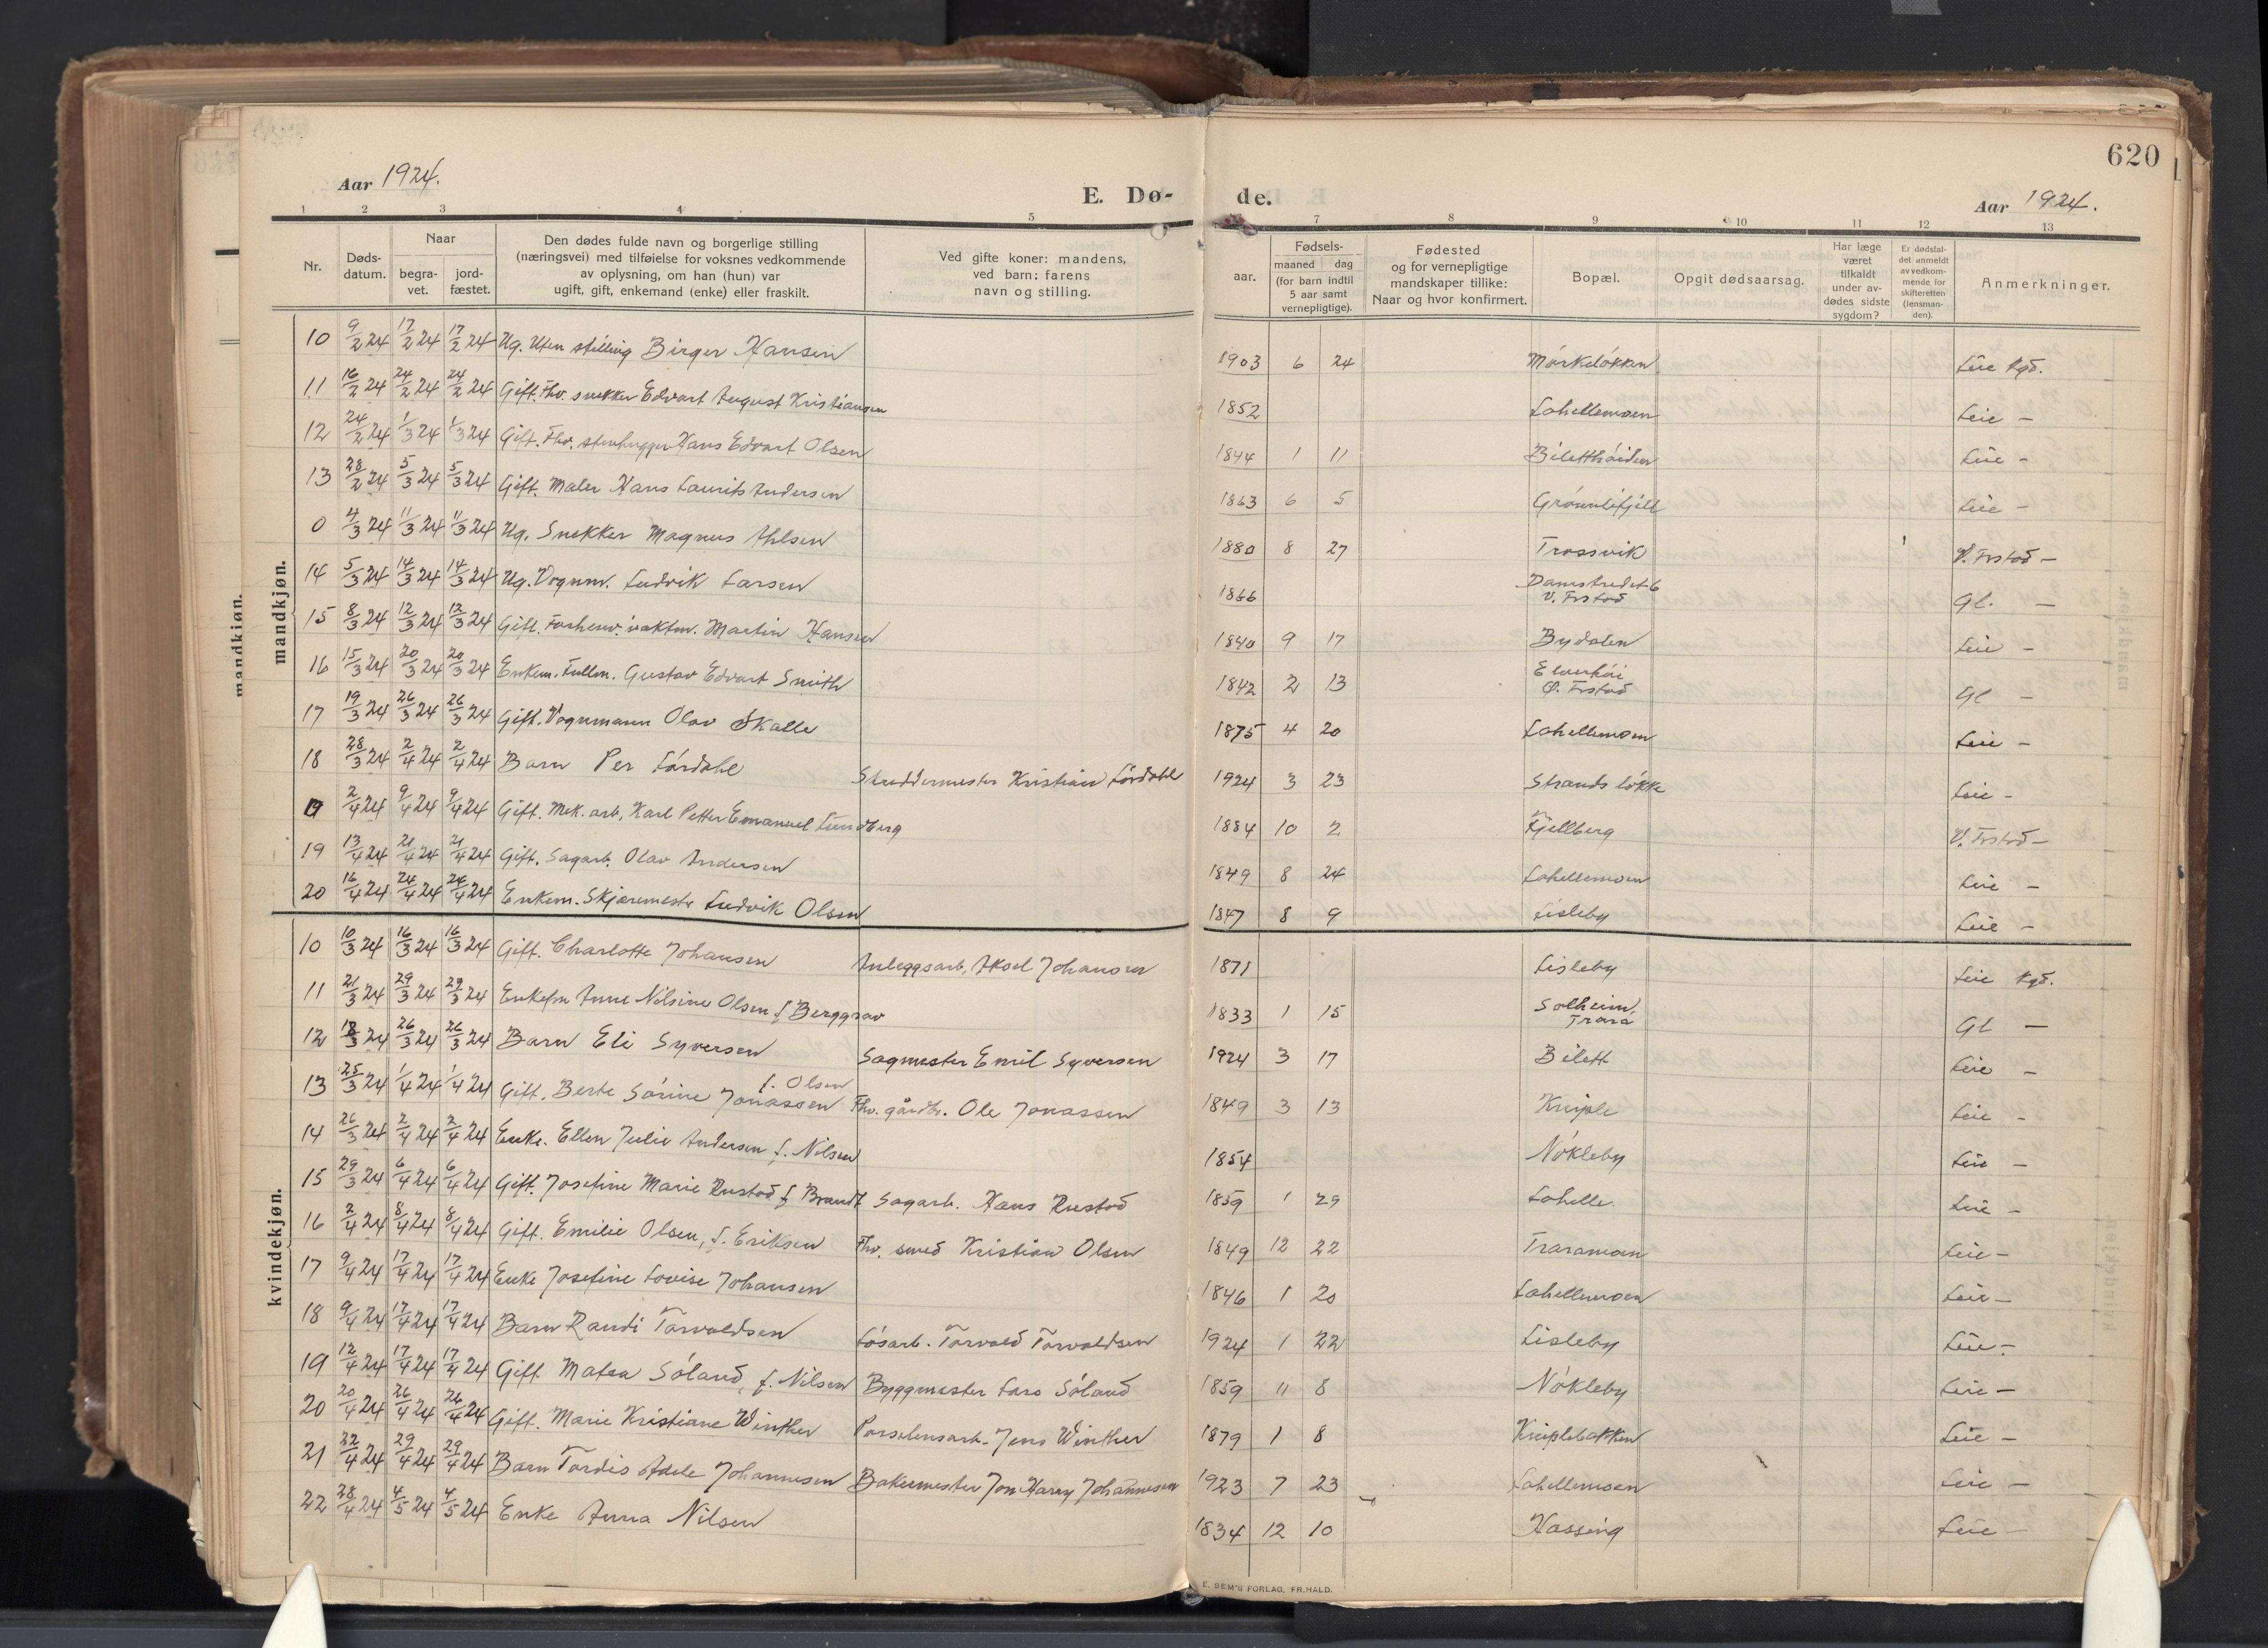 620
Aar 1924.
E. Dø- de.
Aar 1924.
1 2 3 4 5 7 8 9 10 11 12 13
Nr.
Døds-
datum.
Naar
begra-
vet.
jord-
fæstet.
Den dødes fulde navn og borgerlige stilling
(næringsvei) med tilføielse for voksnes vedkommende
av oplysning, om han (hun) var
ugift, gift, enkemand (enke) eller fraskilt.
Ved gifte koner: mandens,
ved barn: farens
navn og stilling.
aar.
Fødsels-
maaned dag
(for barn indtil
5 aar samt
vernepligtige).
Fødested
og for vernepligtige
mandskaper tillike:
Naar og hvor konfirmert.
Bopæl.
Opgit dødsaarsag.
Har læge
været
tilkaldt
under av-
dødes sidste
sygdom?
Er dødsfal-
det anmeldt
av vedkom-
mende for
skifteretten
(lensman-
den).
Anmerkninger.
mandkjøn.
mandkjøn.
10 9/2 24 17/2 24 17/2 24 Ug. Uten stilling Birger Hansen 1903 6 24 Mørkeløkken Leie kgd.
11 16/2 24 24/2 24 24/2 24 Gift. Fhv. snekker Edvart August Kristiansen 1852 Lahellemoen Leie –
12 24/2 24 1/3 24 1/3 24 Gift. Fhv. stenhugger Hans Edvart Olsen 1844 1 11 Biletthøiden Leie –
13 28/2 24 5/3 24 5/3 24 Gift. Maler Hans Laurits Andersen 1863 6 5 Grønnlifjell Leie –
0 4/3 24 11/3 24 11/3 24 Ug. Snekker Magnus Ahlsen 1880 8 27 Trossvik V. Frstad –
14 5/3 24 14/3 24 14/3 24 Ug. Vognm. Ludvik Larsen 1866 Damstredet 6
V. Frstad Gl. –
15 8/3 24 12/3 24 12/3 24 Gift. Forhenv. vaktm. Martin Hansen 1840 9 17 Bydalen Leie –
16 15/3 24 20/3 24 20/3 24 Enkem. Fullm. Gustav Edvart Smith 1842 2 13 Elverhøi
Ø. Frstad Gl –
17 19/3 24 26/3 24 26/3 24 Gift. Vognmann Olav Skalle 1875 4 20 Lahellemoen Leie –
18 28/3 24 2/4 24 2/4 24 Barn Per Lørdahl Skreddermester Kristian Lørdahl 1924 3 23 Strandsløkke Leie –
0 2/4 24 9/4 24 9/4 24 Gift. Mek. arb. Karl Petter Emanuel Lundberg 1884 10 2 Kjellberg V. Frstad –
19 13/4 24 21/4 24 21/4 24 Gift. Sagarb. Olav Andersen 1849 8 24 Lahellemoen Leie –
20 16/4 24 24/4 24 24/4 24 Enkem. Skjæremester Ludvik Olsen 1847 8 9 Lisleby Leie –
kvindekjøn.
10 10/3 24 16/3 24 16/3 24 Gift. Charlotte Johansen Anleggsarb. Aksel Johansen 1871 Lisleby Leie kgd.
11 21/3 24 29/3 24 29/3 24 Enkefru Anne Nilsine Olsen f. Berggrav 1833 1 15 Solheim,
Trara Gl –
12 18/3 24 26/3 24 26/3 24 Barn Eli Syversen Sagmester Emil Syversen 1924 3 17 Bilett Leie –
13 25/3 24 1/4 24 1/4 24 Gift. Berte Sørine Jonassen f. Olsen Fhv. gårdbr. Ole Jonassen 1849 3 13 Kniple Leie –
14 26/3 24 2/4 24 2/4 24 Enke. Ellen Julie Andersen f. Nilsen 1854 Nøkleby Leie –
15 29/3 24 6/4 24 6/4 24 Gift. Josefine Marie Rustad f. Brandt Sagarb. Hans Rustad 1859 1 29 Lahelle. Leie –
16 2/4 24 8/4 24 8/4 24 Gift. Emilie Olsen, f. Eriksen Fhv. smed Kristian Olsen 1849 12 22 Traramoen Leie –
17 9/4 24 17/4 24 17/4 24 Enke Josefine Lovise Johansen 1846 1 20 Lahellemoen Leie –
18 9/4 24 17/4 24 17/4 24 Barn Randi Torvaldsen Løsarb. Torvald Torvaldsen 1924 1 22 Lisleby Leie –
19 12/4 24 17/4 24 17/4 24 Gift Matea Søland, f. Nilsen Byggmester Lars Søland 1859 11 8 Nøkleby Leie –
20 20/4 24 26/4 24 26/4 24 Gift. Marie Kristiane Winther Porselensarb. Jens Winther 1879 1 8 Kniplebakken Leie –
21 22/4 24 29/4 24 29/4 24 Barn Tordis Adele Johannesen Bakermester Jon Harry Johannesen 1923 7 23 Lahellemoen Leie –
22 28/4 24 4/5 24 4/5 24 Enke Anna Nilsen 1834 12 10 Hassing Leie –
E. SEM'S FORLAG, FR.HALD.